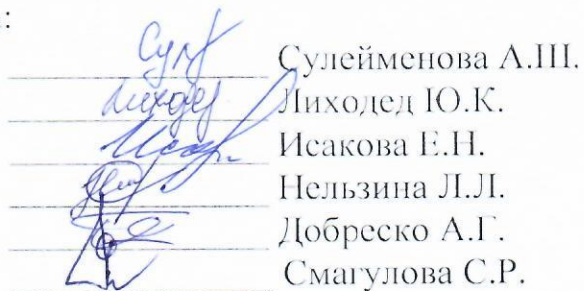 :
Сулейменова А.Ш.
Лиходед Ю.К.
Исакова Е.Н.
Нельзина Л.Л.
Добреско А.Г.
Смагулова С.Р.